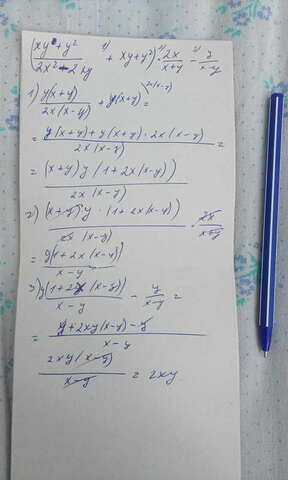 (xy+y²/2x²-2xy + xy+y²) · 2x/x+y - y/x-y
1) y(x+y)/2x(x-y) + y(x+y) =
= y(x+y)+y(x+y)·2x(x-y)/2x(x-y) =
= (x+y)y(1+2x(x-y))/2x(x-y)
2) (x+y)y·(1+2x(x-y))/2x(x-y) · 2x/x+y
= y(1+2x(x-y))/x-y
3) y(1+2x(x-y))/x-y - y/x-y =
= y+2xy(x-y)-y/x-y
2xy(x-y)/x-y = 2xy